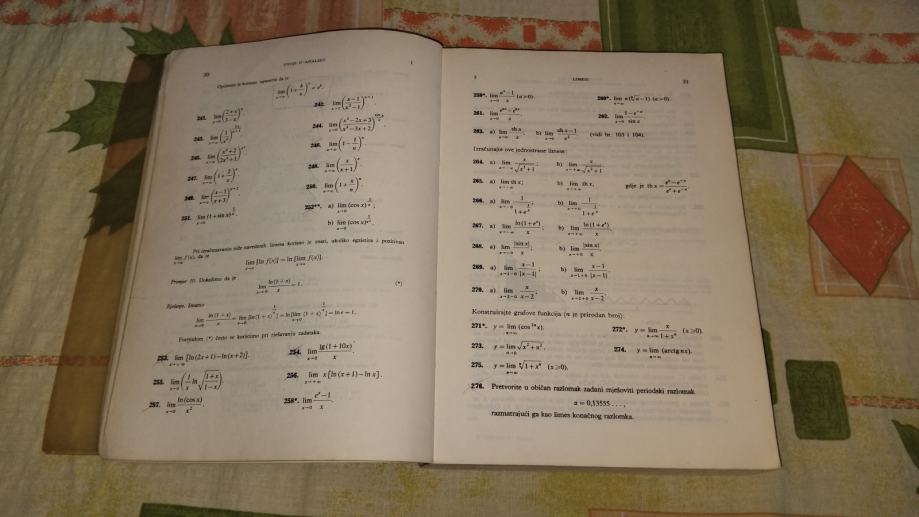 30
UVOD U ANALIZU
1
Općenito je korisno upamtiti da je
lim x→∞ (1 + k/x)^x = e^k.
241. lim x→0 ((2+x)/(3−x))^x.
242. lim x→1 ((x−1)/(x²−1))^(x+1).
243.
244. lim x→0 ((x²−2x+3)/(x²−3x+2))^(sin x/x).
245. lim x→∞ ((x²+2)/(2x²+1))^x².
246. lim n→∞ (1 − 1/n)^n.
247. lim x→∞ (1 + 2/x)^x.
248. lim x→∞ (x/(x+1))^x.
249. lim x→∞ ((x−1)/(x+3))^(x+2).
250. lim n→∞ (1 + x/n)^n.
251. lim x→0 (1 + sin x)^(1/x).
252**. a) lim x→0 (cos x)^(1/x);
b) lim x→0 (cos x)^(1/x²).
Pri izračunavanju niže navedenih limesa korisno je znati, ukoliko egzistira i pozitivan
lim f(x), da je
lim x→a [ln f(x)] = ln [lim x→a f(x)].
Primjer 10. Dokažimo da je
lim x→0 ln(1+x)/x = 1. (*)
Rješenje. Imamo
lim x→0 ln(1+x)/x = lim x→0 [ln(1+x)^(1/x)] = ln [lim x→0 (1+x)^(1/x)] = ln e = 1.
Formulom (*) često se koristimo pri rješavanju zadataka.
253. lim x→+∞ [ln(2x+1) − ln(x+2)].
254. lim x→0 lg(1+10x)/x.
255. lim x→0 (1/x ln √((1+x)/(1−x))).
256. lim x→+∞ x[ln(x+1) − ln x].
257. lim x→0 ln(cos x)/x².
258*. lim x→0 (e^x−1)/x.
LIMESI
31
259*. lim x→0 (a^x−1)/x (a>0).
260*. lim n→∞ n(ⁿ√a − 1) (a>0).
261. lim x→0 (e^ax − e^bx)/x.
262. lim x→0 (1−e^−x)/sin x.
263. a) lim x→0 sh x/x; b) lim x→0 (ch x − 1)/x² (vidi br. 103 i 104).
Izračunajte ove jednostrane limese:
264. a) lim x→−∞ x/√(x²+1); b) lim x→+∞ x/√(x²+1).
265. a) lim x→−∞ th x; b) lim x→+∞ th x, gdje je th x = (e^x − e^−x)/(e^x + e^−x).
266. a) lim x→−0 1/(1+e^(1/x)); b) lim x→+0 1/(1+e^(1/x)).
267. a) lim x→−∞ ln(1+e^x)/x; b) lim x→+∞ ln(1+e^x)/x.
268. a) lim x→−0 |sin x|/x; b) lim x→+0 |sin x|/x.
269. a) lim x→1−0 (x−1)/|x−1|; b) lim x→1+0 (x−1)/|x−1|.
270. a) lim x→2−0 x/(x−2); b) lim x→2+0 x/(x−2).
Konstruirajte grafove funkcija (n je prirodan broj):
271*. y = lim n→∞ (cos²ⁿ x).
272*. y = lim n→∞ x/(1+xⁿ) (x⩾0).
273. y = lim α→0 √(x²+α²).
274. y = lim n→∞ (arctg nx).
275. y = lim n→∞ ⁿ√(1+xⁿ) (x⩾0).
276. Pretvorite u običan razlomak zadani mješoviti periodski razlomak
α = 0,13555 . . . ,
razmatrajući ga kao limes konačnog razlomka.